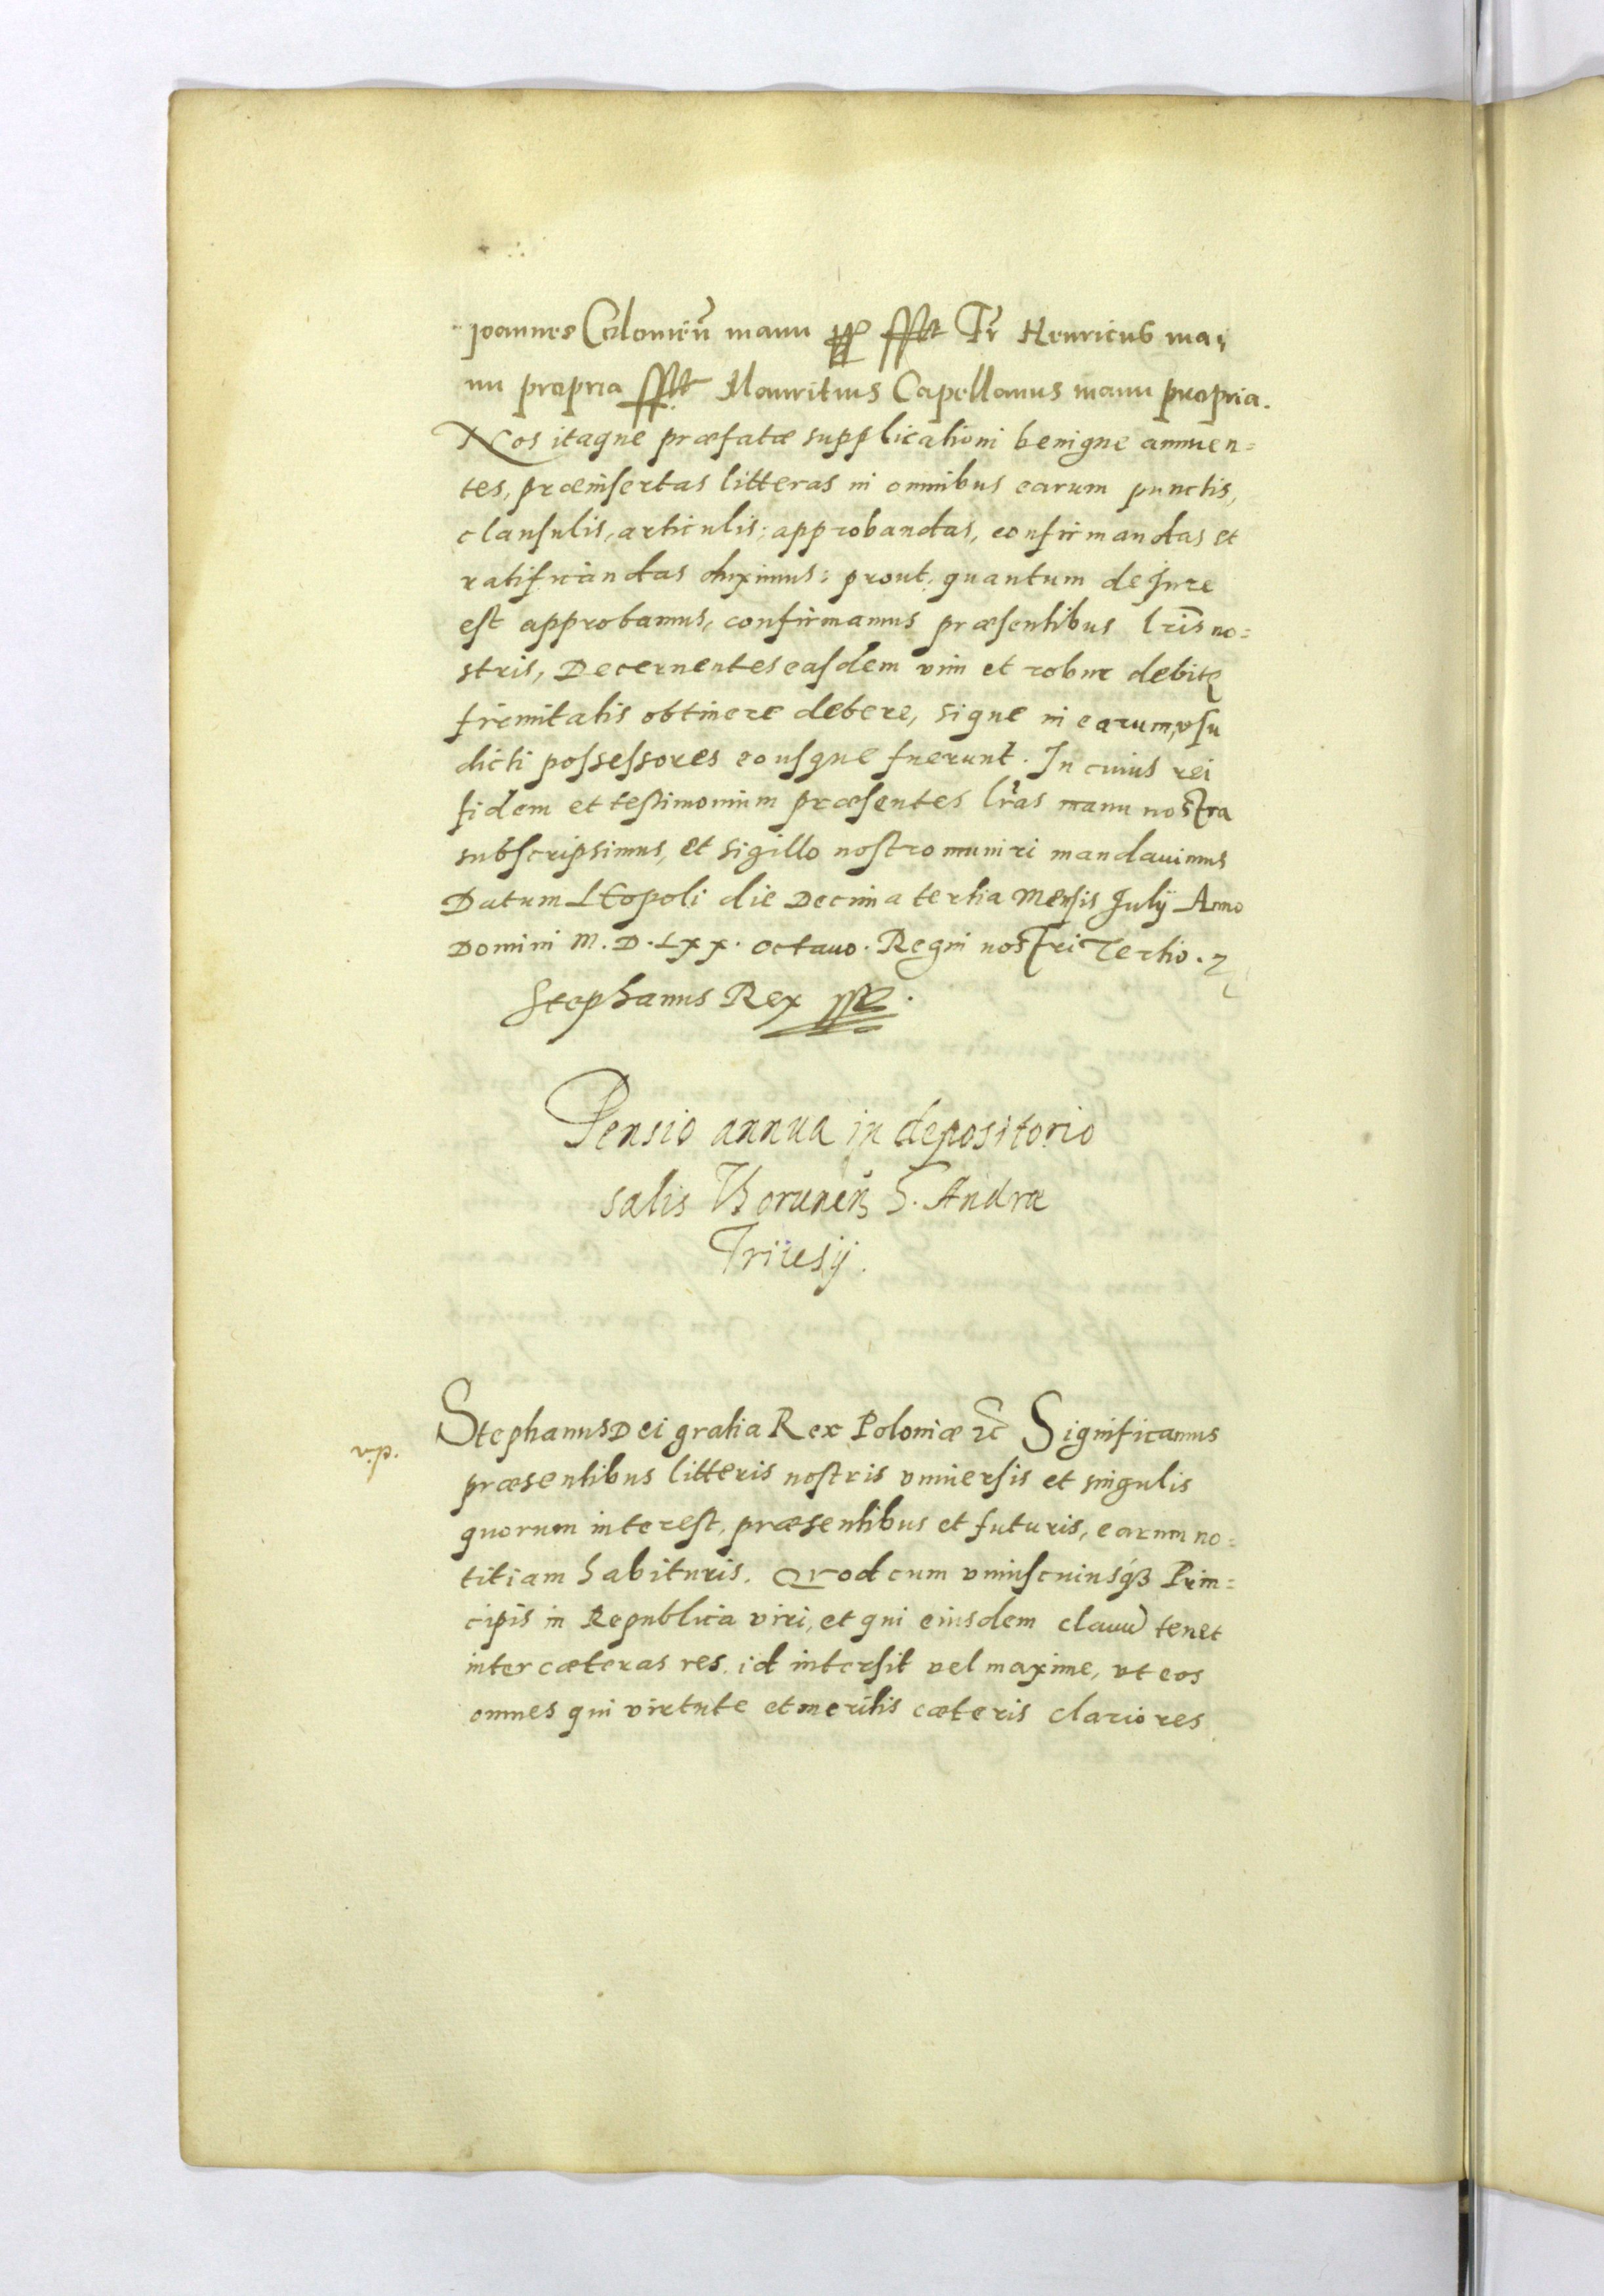 Joannes Colomeñ manu ppa ssst Fr Henricus ma,
nu propria ssst Mauritius Capellanus manu propria.
Nos itaque præfatæ supplicationi benigne annuen=
tes, præinsertas litteras in omnibus earum punctis,
clausulis, articulis, approbandas, confirmandas et
ratificandas duximus: prout, quantum de Jure
est approbamus, confirmamus præsentibus lris no=
stris, Decernentes easdem vim et robur debitę
firmitatis obtinere debere, sique in earum, usu
dicti possessores eousque fuerunt. In cuius rei
fidem et testimonium præsentes lras manu nostra
subscripsimus, et sigillo nostro muniri mandauimus
Datum LEopoli die Decima tertia Mensis Julij Anno
Domini M.D.Lxx. octauo. Regni nostri Tertio.
Stephanus Rex sst.
Pensio annua in depositorio
salis Thoruneñ G. Andræ
Tricesij.
Stephanus Dei gratia Rex Poloniæ etc Significamus
vip.
præsentibus litteris nostris vniuersis et singulis
quorum interest, præsentibus et futuris, earum no=
titiam habituris. Quod cum vniuscuiusq3 Prin=
cipis in Republica viri, et qui eiusdem clauū tenet
inter cæteras res. id intersit vel maxime, vt eos
omnes qui virtute et meritis cæteris clariores